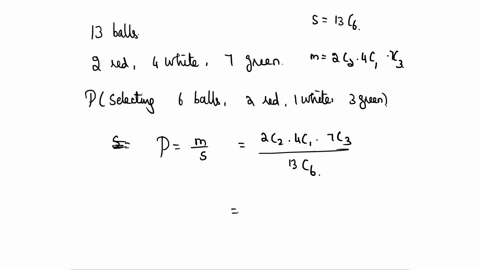 13 balls.
S = 13C6.
2 red, 4 white, 7 green.
m = 2C2 · 4C1 · 7C3
P( Selecting 6 balls, 2 red, 1 white 3 green)
P = m/S = 2C2 · 4C1 · 7C3 / 13C6.
=